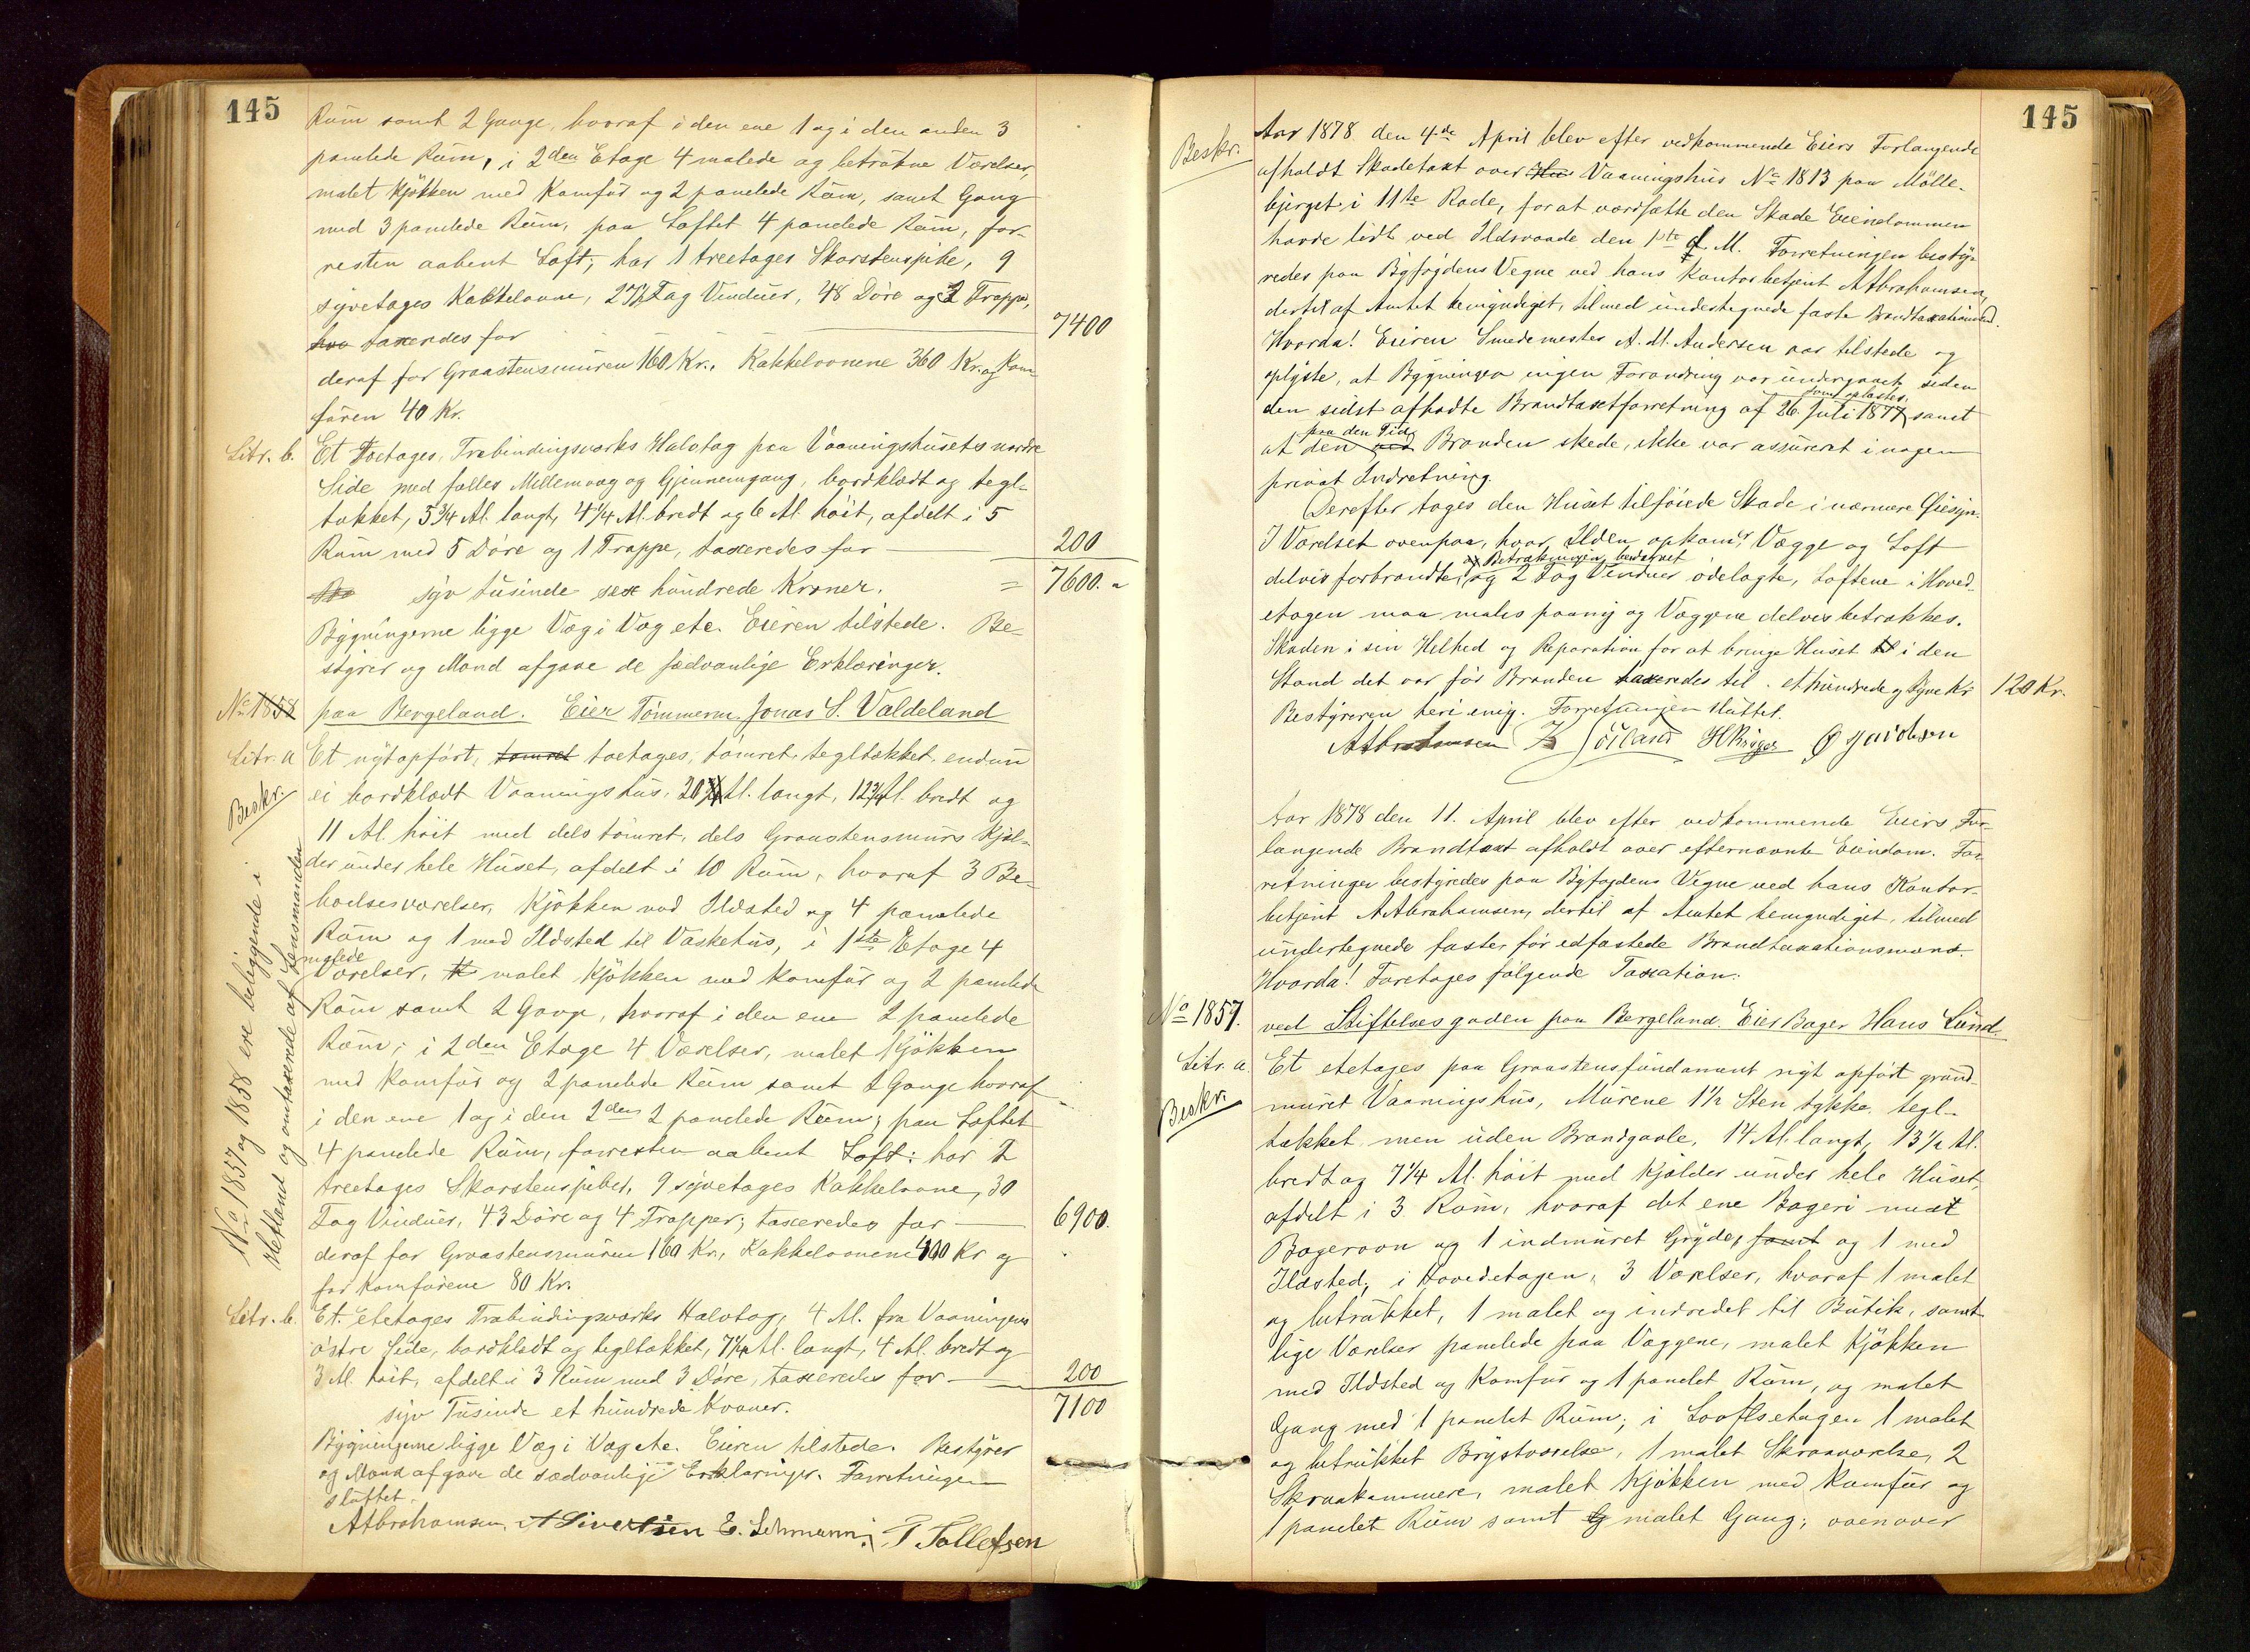 145
Rum samt 2 Gange, hvoraf i den ene 1 og i den anden 3
panelede Rum, i 2den Etage 4 malede og betrukne Værelser,
malet Kjøkken med Komfur og 2 panelede Rum, samt Gang
med 3 panelede Rum, paa Loftet 4 panelede Rum, for-
resten aabent Loft; har 1 treetages Skorstenspibe, 9
syvetages Kakkelovne, Fag Vinduer, 48 Døre og 2 Trapper,
hvo taxeredes for 7400
deraf for Graastensmuren 160 Kr., Kakkelovnene 360 Kr. og Kom-
furen 40 Kr.
Litr. b. Et toetages, Træbindingsværks Halvtag paa Vaaningshusets nordre
Side med fælles Mellemvæg og Gjennemgang, bordklædt og tegl-
tækket, 5 3/4 Al. langt, 4 1/4 Al. bredt og 6 Al. høit, afdelt i 5
Rum med 5 Døre og 1 Trappe, taxeredes for 200
syv tusinde sex hundrede Kroner. = 7600.
Bygningerne ligge Væg i Væg etc. Eieren tilstede. Be-
styrer og Mænd afgave de sædvanlige Erklæringer.
No 1858 paa Bergeland. Eier Tømmerm. Jonas S. Valdeland
Litr. a Et nyt opført, tømret toetages, tømret, tegltækket, endnu
Beskr. ei bordklædt Vaaningshus, 20 Al. langt, 12 3/4 Al. bredt og
11 Al. høit med dels tømret, dels Graastensmurs Kjæl-
der under hele Huset, afdelt i 10 Rum, hvoraf 3 Be-
boelsesværelser, Kjøkken med Ildsted og 4 panelede
Rum og 1 med Ildsted til Vaskehus, i 1ste Etage 4
malede
Værelser, malet Kjøkken med Komfur og 2 panelede
Rum samt 2 Gange, hvoraf i den ene 2 panelede
Rum; i 2den Etage 4 Værelser, malet Kjøkken
med Komfur og 2 panelede Rum samt 2 Gange hvoraf
i den ene 1 og i den 2den 2 panelede Rum; paa Loftet
4 panelede Rum, forresten aabent Loft; har 2
treetages Skorstenspiber, 9 syvetages Kakkelovne, 30
Fag Vinduer, 43 Døre og 4 Trapper; taxeredes for 6900.
deraf for Graastensmuren 160 Kr., Kakkelovnene 400 Kr og
for Komfurene 80 Kr.
Litr. b. Et etetages Træbindingsværks Halvtag, 4 Al. fra Vaaningens
østre Side, bordklædt og tegltækket, 7 1/4 Al. langt, 4 Al. bredt og
3 Al. høit, afdelt i 3 Rum med 3 Døre, taxeredes for 200
syv Tusinde et hundrede Kroner. 7100
Bygningerne ligge Væg i Væg etc. Eieren tilstede. Bestyrer
og Mænd afgave de sædvanlige Erklæringer. Forretningen
sluttet.
AAbrahamsen. A Sivertsen E. Lehmann. T. Tollefsen
No 1857 og 1858 ere beliggende i
Hetland og omtaxerede af Lensmanden
145
Beskr. Aar 1878 den 4de April blev efter vedkommende Eiers Forlangende
afholdt Skadetaxt over Hus Vaaningshus No 1813 paa Mølle-
bjerget i 11te Rode, for at værdsætte den Skade Eiendommen
havde lidt ved Ildsvaade den 1ste d. M. Forretningen besty-
redes paa Byfogdens Vegne ved hans Kontorbetjent AAbrahamsen,
dertil af Amtet bemyndiget, tilmed undertegnede faste Brandtaxationsmænd.
Hvorda! Eieren Smedemester A. M. Andersen var tilstede og
oplyste, at Bygningen ingen Forandring var undergaaet siden
den sidst afholdte Brandtaxtforretning af 26. Juli 1877 samt
paa den Tid
at den ved Branden skede, ikke var assureret i nogen
privat Indretning.
Derefter toges den Huset tilføiede Skade i nærmere Øiesyn.
I Værelset ovenpaa, hvor Ilden opkom, Vægge og Loft
og Betrækningen beskadet
delvis forbrændte, og 2 Fag Vinduer ødelagte, Loftene i Hoved-
etagen maa males paany og Væggene delvis betrækkes.
Skaden i sin Helhed og Reparation for at bringe Huset i den
Stand det var før Branden taxeredes til et hundrede og tyve Kr 120 Kr.
Bestyreren heri enig. Forretningen sluttet.
AAbrahamsen K Sörland HKrüger O Jacobsen
Aar 1878 den 11. April blev efter vedkommende Eiers For-
langende Brandtaxt afholdt over efternævnte Eiendom. For-
retningen bestyredes paa Byfogdens Vegne ved hans Kontor-
betjent AAbrahamsen, dertil af Amtet bemyndiget, tilmed
undertegnede faste, før edfæstede Brandtaxationsmænd.
Hvorda! Foretoges følgende Taxation:
No 1857. ved Stiftelsesgaden paa Bergeland. Eier Bager Hans Lund.
Litr. a. Et etetages paa Graastensfundament nyt opført grund-
Beskr. muret Vaaningshus, Murene 1 1/2 Sten tykke, tegl-
tækket men uden Brandgavle, 14 Al. langt, 13 1/2 Al.
bredt og 7 1/4 Al. høit med Kjælder under hele Huset,
afdelt i 3 Rum, hvoraf det ene Bageri med
Bagerovn og 1 indmuret Gryde, samt og 1 med
Ildsted; i Hovedetagen, 3 Værelser, hvoraf 1 malet
og betrukket, 1 malet og indredet til Butik, samt-
lige Værelser panelede paa Væggene, malet Kjøkken
med Ildsted og Komfur og 1 panelet Rum, og malet
Gang med 1 panelet Rum; i Loftsetagen 1 malet
og betrukket Brystværelse, 1 malet Skraaværelse, 2
Skraakammere, malet Kjøkken med Komfur og
1 panelet Rum samt G malet Gang; ovenover